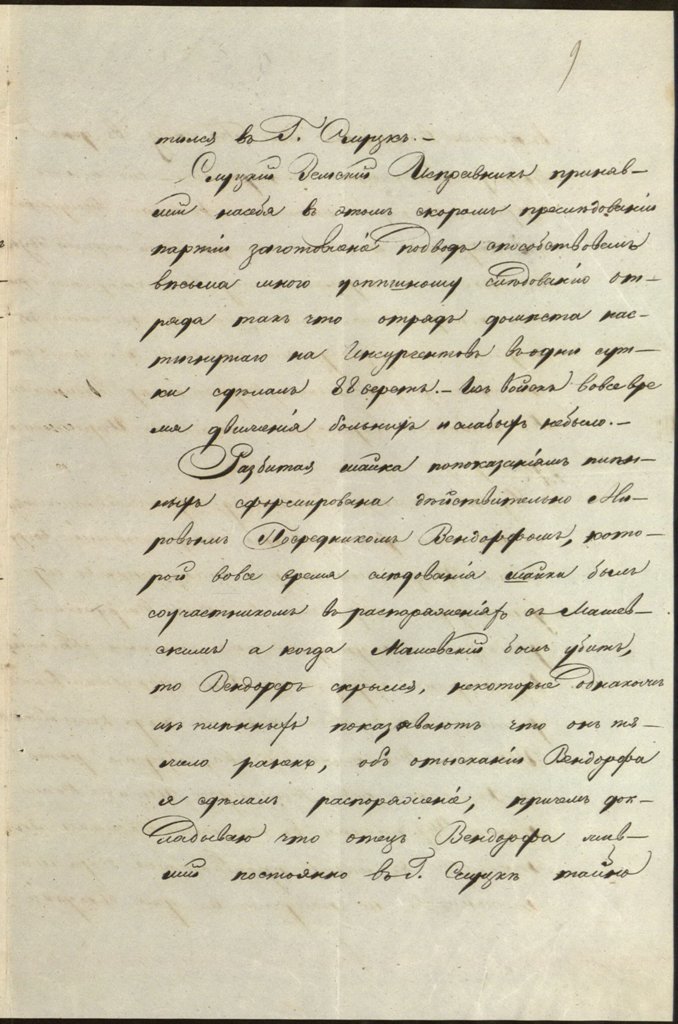 9
тился въ Г. Слуцкъ. —
Слуцкій Земскій Исправникъ приняв-
шій насебя въ этомъ скоромъ преслѣдованіи
партіи заготовленіе подводъ способствовалъ
весьма много успѣшному слѣдованію от-
ряда такъ что отрядъ домѣста нас-
тигнутаго на Инсургентовъ въодни сут-
ки сдѣлалъ 88 верстъ. — Изъ войскъ вовсе вре
мя движенія больныхъ и слабыхъ небыло. —
Разбитая шайка попоказаніямъ плѣн-
ныхъ сформирована дѣйствительно Ми-
ровымъ Посредникомъ Вендорфомъ, кото-
рой вовсе время слѣдованія шайки былъ
соучастникомъ въ распоряженіяхъ съ Машев-
скимъ а когда Машевскій былъ убитъ,
то Вендорфъ скрылся, некоторые однакожъ
изъ плѣнныхъ показываютъ что онъ тя-
жело раненъ, объ отысканіи Вендорфа
я сдѣлалъ распоряженіе, причемъ док-
ладываю что отецъ Вендорфа жив-
шій постоянно въ Г. Слуцкѣ тайно